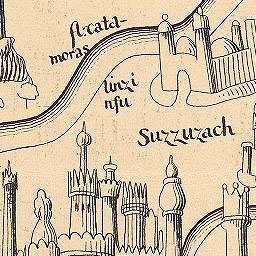 fl. cata-
moras
linzi
nfu
Suzzuzach